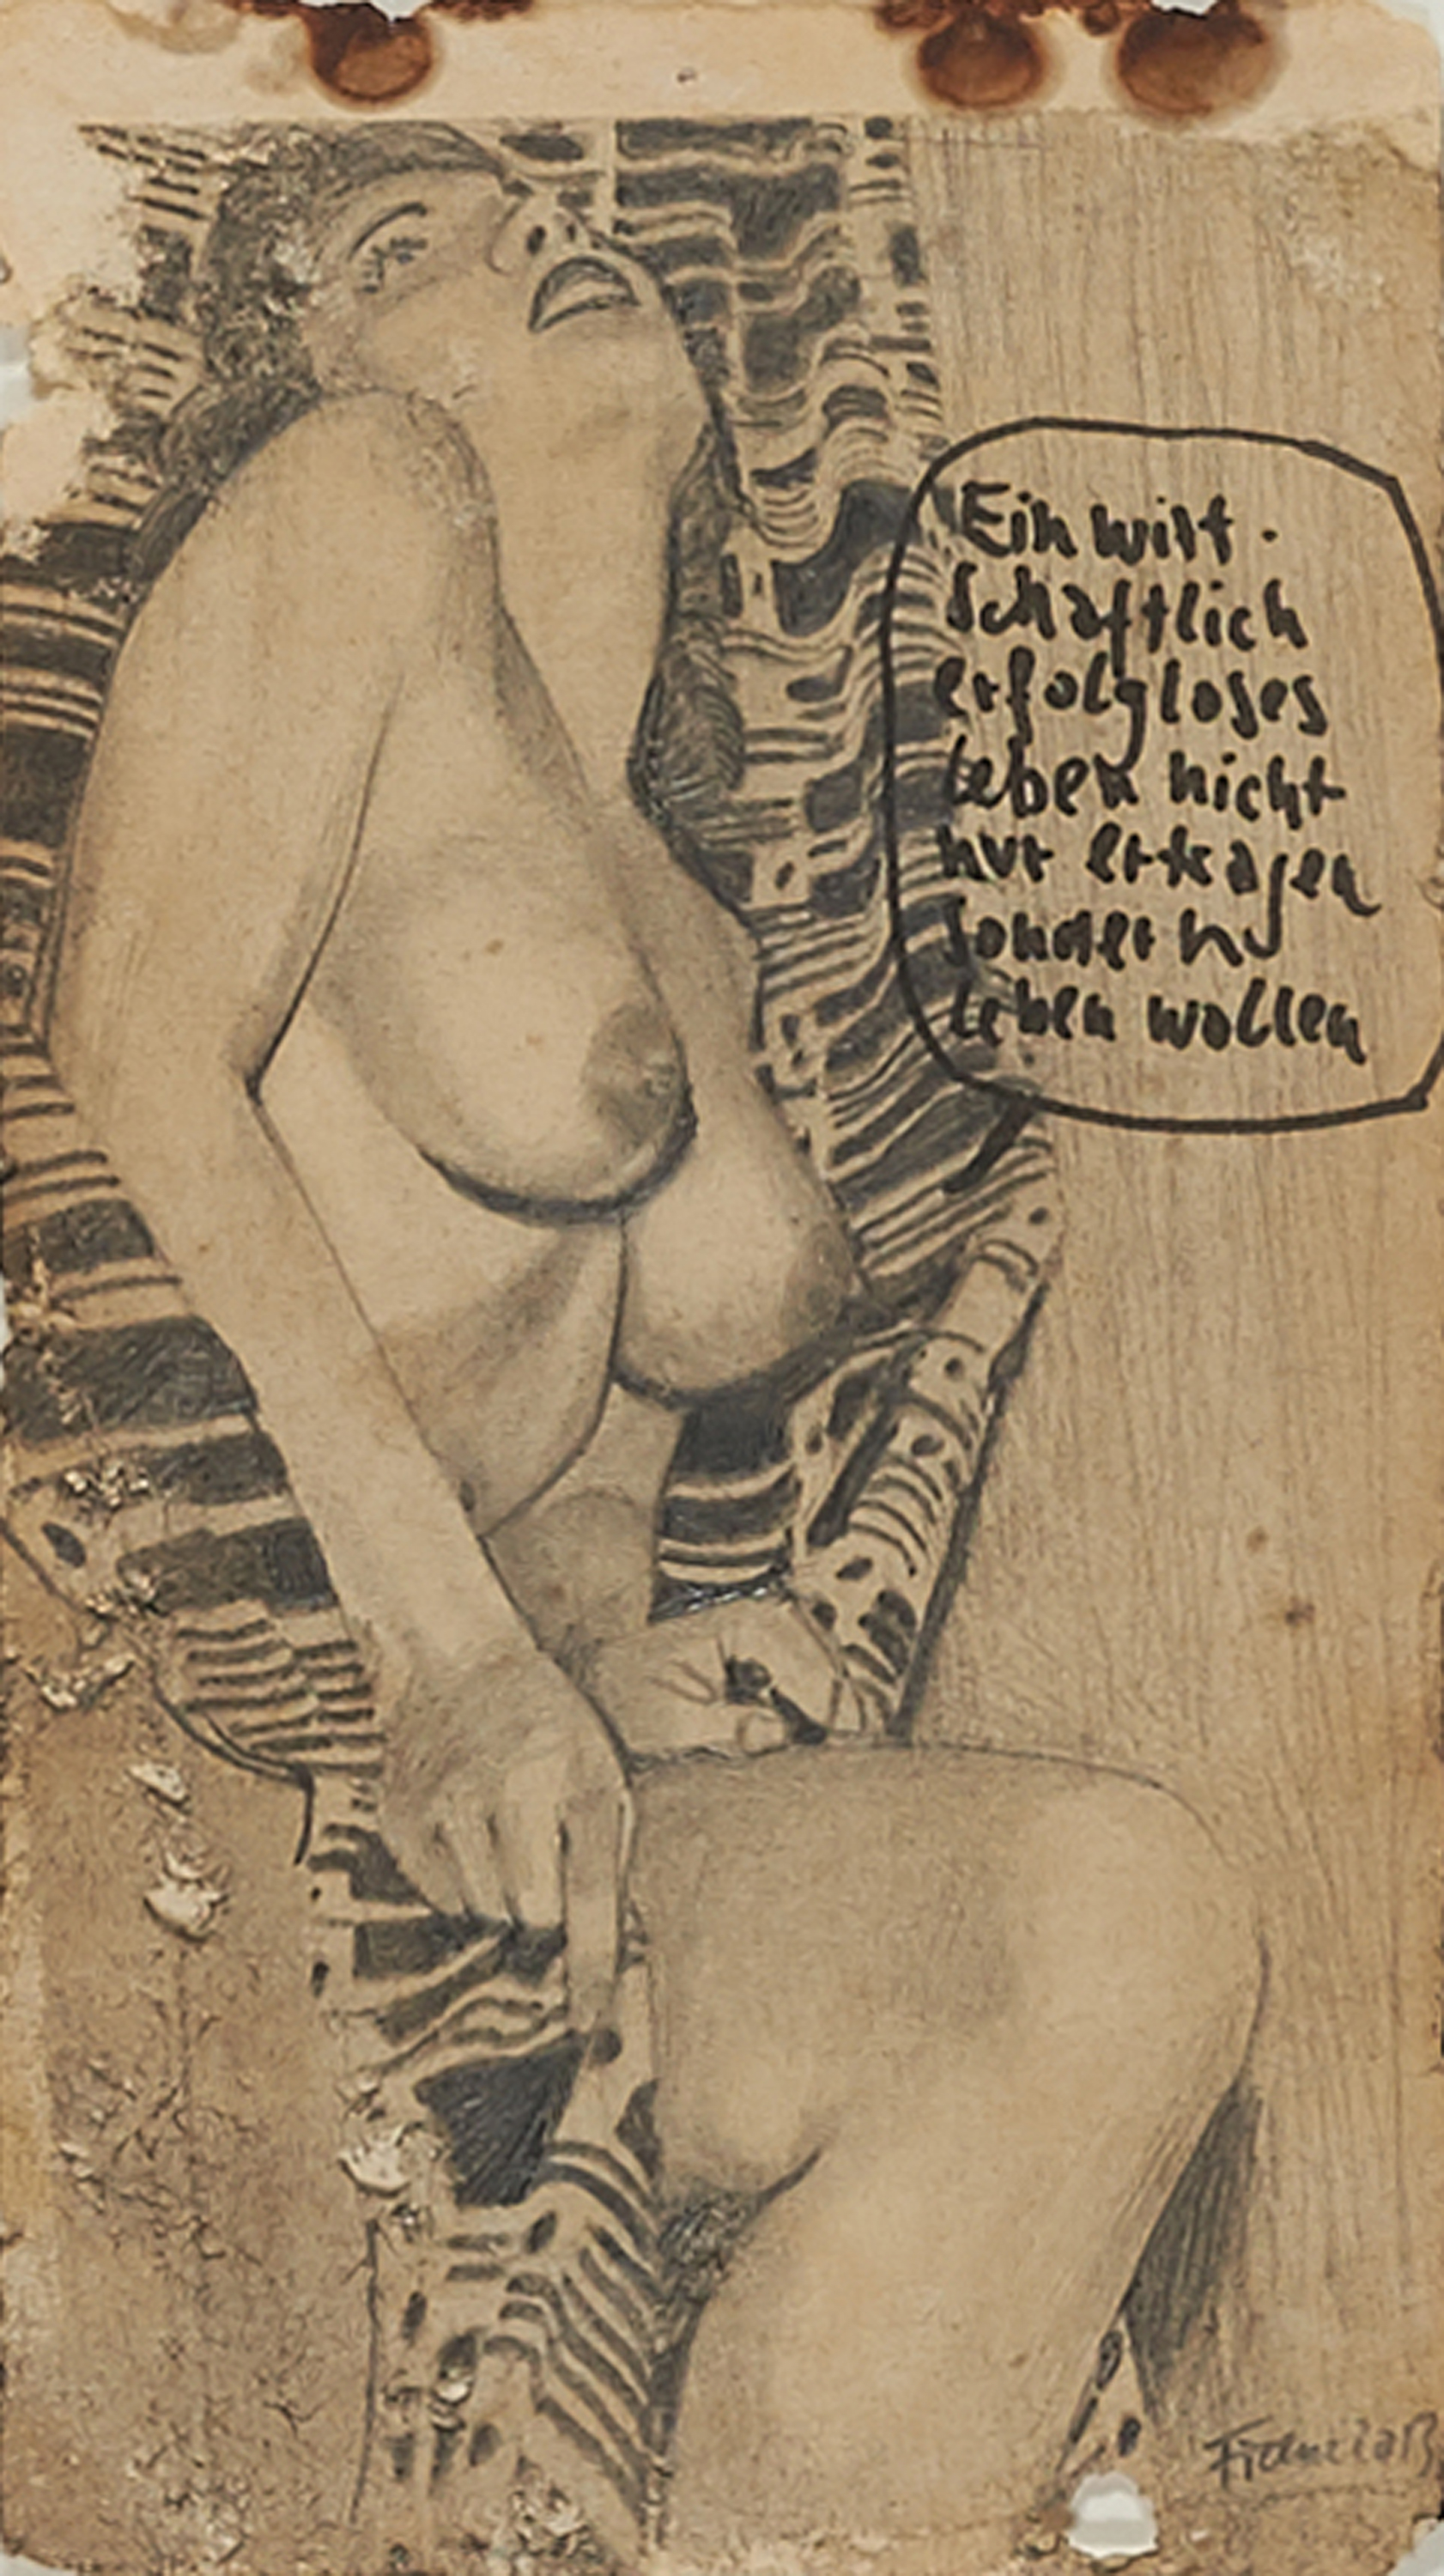 Ein wirt-
schaftlich
erfolgloses
Leben nicht
nur ertragen
sondern
Leben wollen